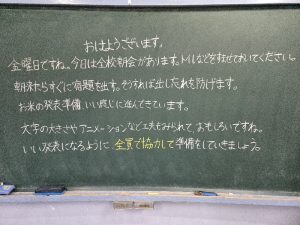 おはようございます。
金曜日ですね。今日は全校朝会があります。トイレなどをすませておいてください。
朝来たらすぐに宿題を出す。そうすれば出し忘れを防げます。
お米の発表準備 いい感じに進んできています。
文字の大きさやアニメーションなど工夫もみられて、おもしろいですね。
いい発表になるように 全員で協力して準備をしていきましょう。